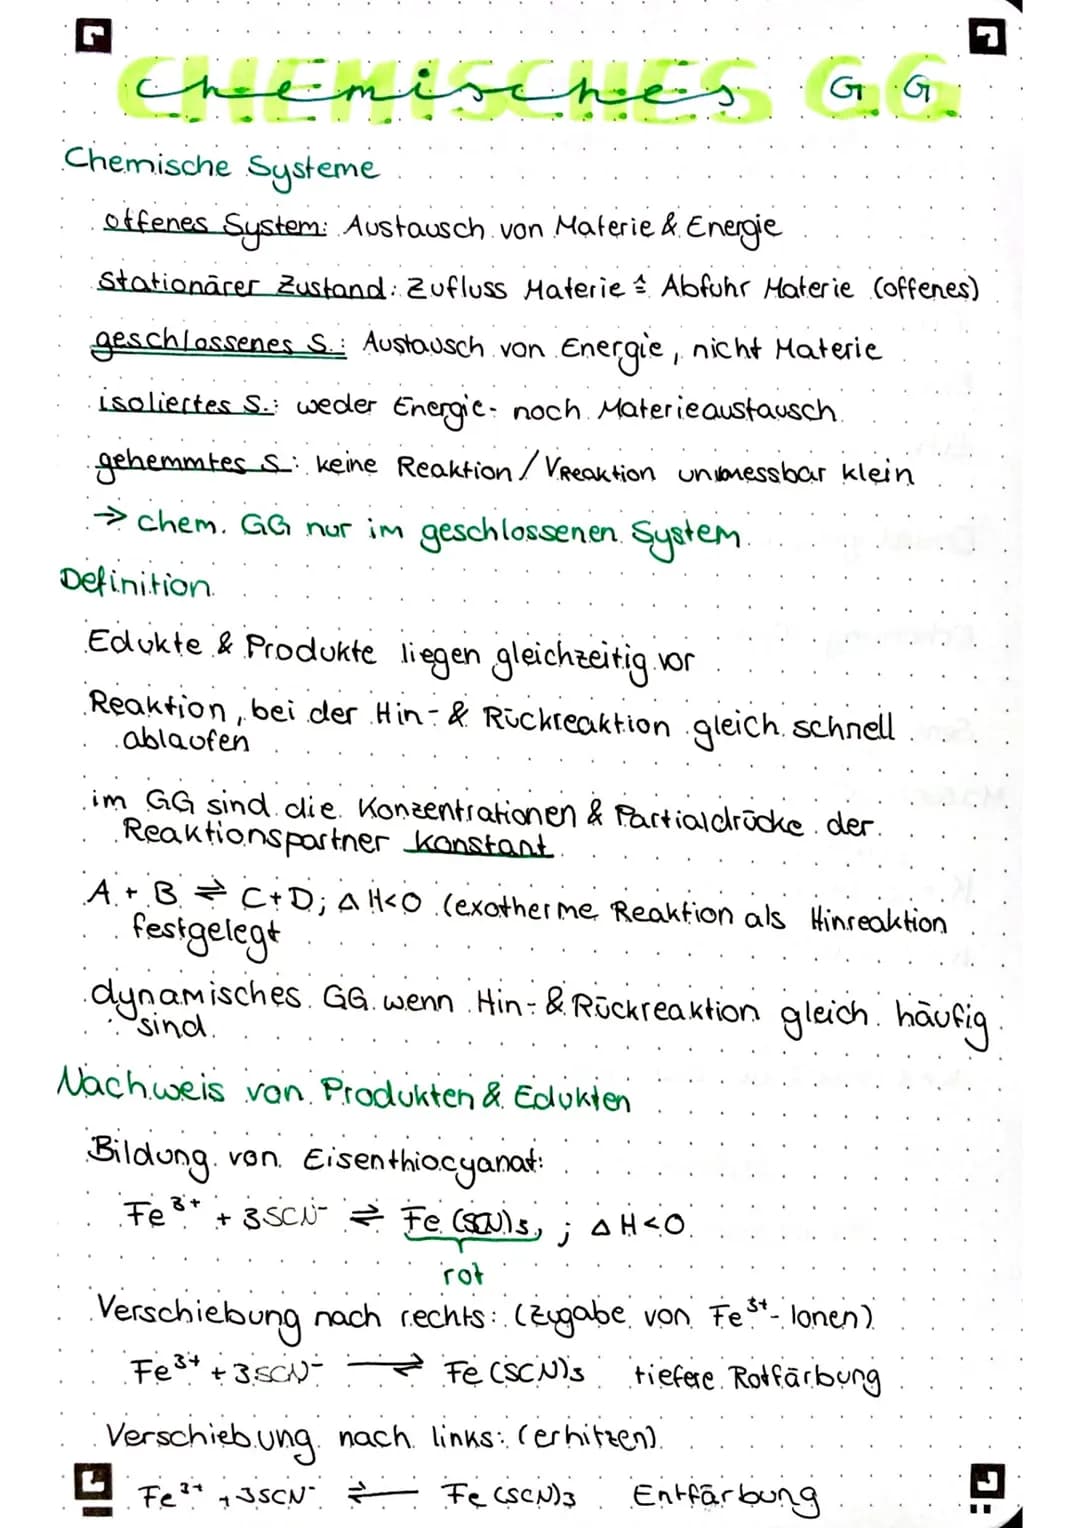 Chemisches GG
CHEMISCHES GG
Chemische Systeme
offenes System: Austausch von Materie & Energie
Stationärer Zustand: Zufluss Materie ≙ Abfuhr Materie (offenes)
geschlossenes S.: Austausch von Energie, nicht Materie
isoliertes S.: weder Energie- noch Materieaustausch
gehemmtes S.: keine Reaktion / VReaktion unmessbar klein
→ chem. GG nur im geschlossenen System
Definition
Edukte & Produkte liegen gleichzeitig vor
Reaktion, bei der Hin- & Rückreaktion gleich schnell
ablaufen
im GG sind die Konzentrationen & Partialdrücke der
Reaktionspartner konstant
A + B ⇌ C+D; ΔH<0 (exotherme Reaktion als Hinreaktion
festgelegt
dynamisches GG wenn Hin- & Rückreaktion gleich häufig
sind.
Nachweis von Produkten & Edukten
Bildung von Eisenthiocyanat:
Fe³⁺ + 3SCN⁻ ⇌ Fe(SCN)₃ ; ΔH<0
rot
Verschiebung nach rechts: (Zugabe von Fe³⁺-Ionen)
Fe³⁺ + 3SCN⁻ ⇌ Fe(SCN)₃ tiefere Rotfärbung
Verschiebung nach links: (erhitzen)
Fe³⁺ + 3SCN⁻ ⇌ Fe(SCN)₃ Entfärbung